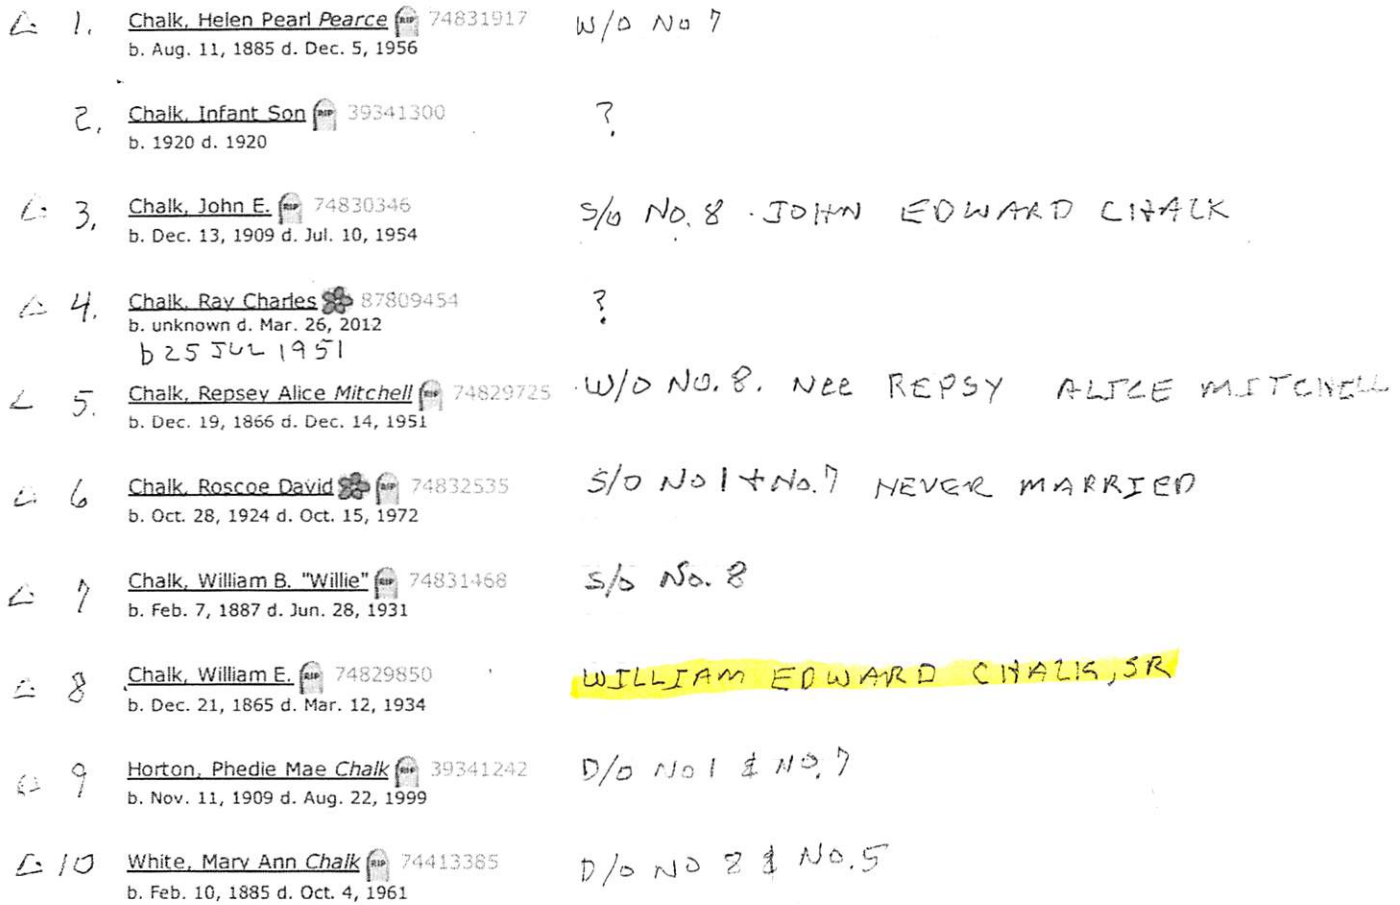 1. Chalk, Helen Pearl Pearce RIP 74831917 W/O NO 7
b. Aug. 11, 1885 d. Dec. 5, 1956
2. Chalk, Infant Son RIP 39341300 ?
b. 1920 d. 1920
3. Chalk, John E. RIP 74830346 S/O NO. 8 . JOHN EDWARD CHALK
b. Dec. 13, 1909 d. Jul. 10, 1954
4. Chalk, Ray Charles 87809454 ?
b. unknown d. Mar. 26, 2012
b 25 JUL 1951
5. Chalk, Repsey Alice Mitchell RIP 74829725 W/O NO. 8. Nee REPSY ALICE MITCHELL
b. Dec. 19, 1866 d. Dec. 14, 1951
6 Chalk, Roscoe David RIP 74832535 S/O NO 1 + NO. 7 NEVER MARRIED
b. Oct. 28, 1924 d. Oct. 15, 1972
7 Chalk, William B. "Willie" RIP 74831468 S/O NO. 8
b. Feb. 7, 1887 d. Jun. 28, 1931
8 Chalk, William E. RIP 74829850 WILLIAM EDWARD CHALK, SR
b. Dec. 21, 1865 d. Mar. 12, 1934
9 Horton, Phedie Mae Chalk RIP 39341242 D/O NO 1 & NO. 7
b. Nov. 11, 1909 d. Aug. 22, 1999
10 White, Mary Ann Chalk RIP 74413385 D/O NO 8 & NO. 5
b. Feb. 10, 1885 d. Oct. 4, 1961